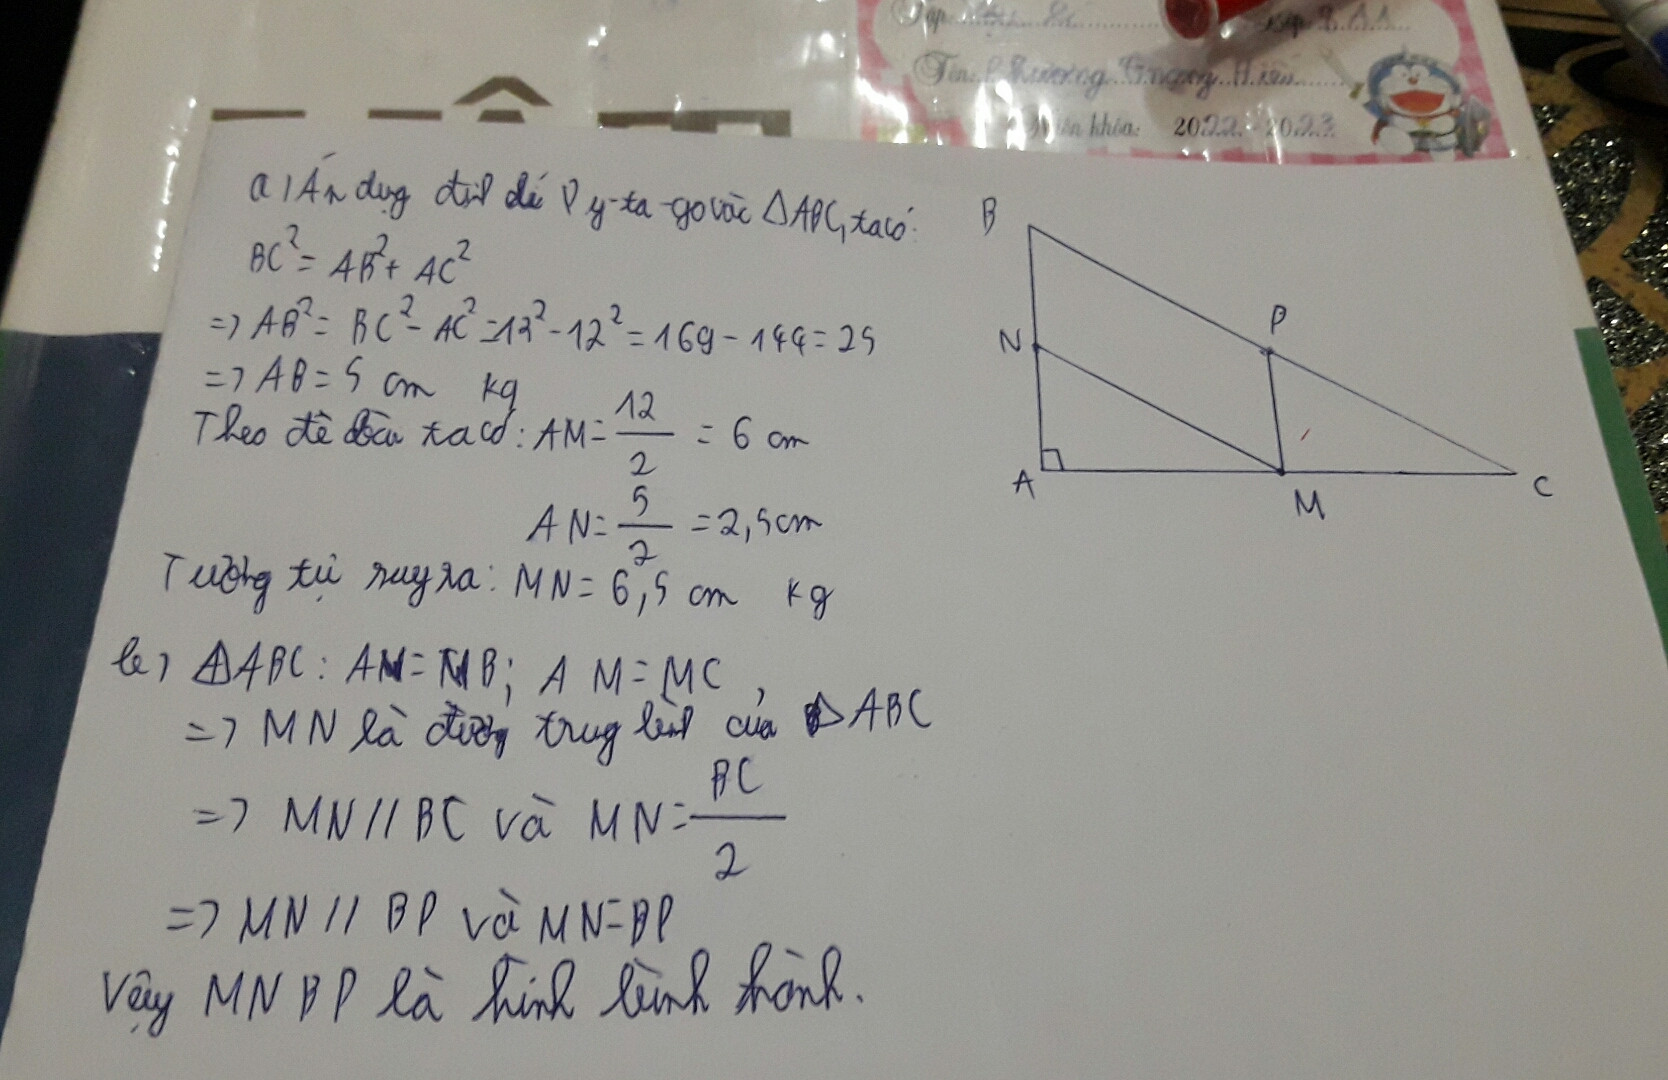 Tên: Trương Quang Hiếu
Niên khóa: 2022 - 2023
a) Áp dụg địl lí Py-ta-go vào △ABC, ta có:
BC² = AB² + AC²
=> AB² = BC² - AC² = 13² - 12² = 169 - 144 = 25
=> AB = 5 cm kg
Theo đề bài ta có: AM = 12/2 = 6 cm
AN = 5/2 = 2,5 cm
Tương tự suy ra: MN = 6,5 cm kg
b) △ABC: AN = NB; AM = MC
=> MN là đường trug bìnl của △ABC
=> MN // BC và MN = BC/2
=> MN // BP và MN = BP
Vậy MNBP là hình bình hành.
B
N
P
A
M
C